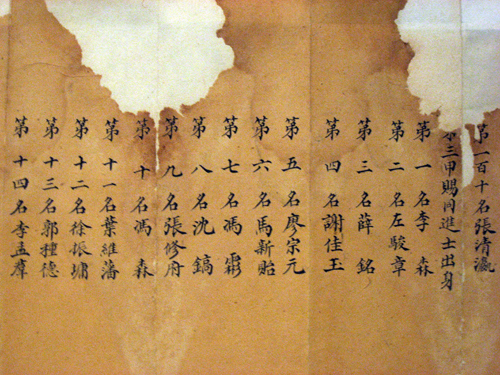 第一百十名張清瀛
第三甲賜同進士出身
第一名李森
第二名左駿章
第三名薛銘
第四名謝佳玉
第五名廖宗元
第六名馬新貽
第七名馮霨
第八名沈鎬
第九名張修府
第十名馮森
第十一名葉維藩
第十二名徐振墉
第十三名郭種德
第十四名李孟羣